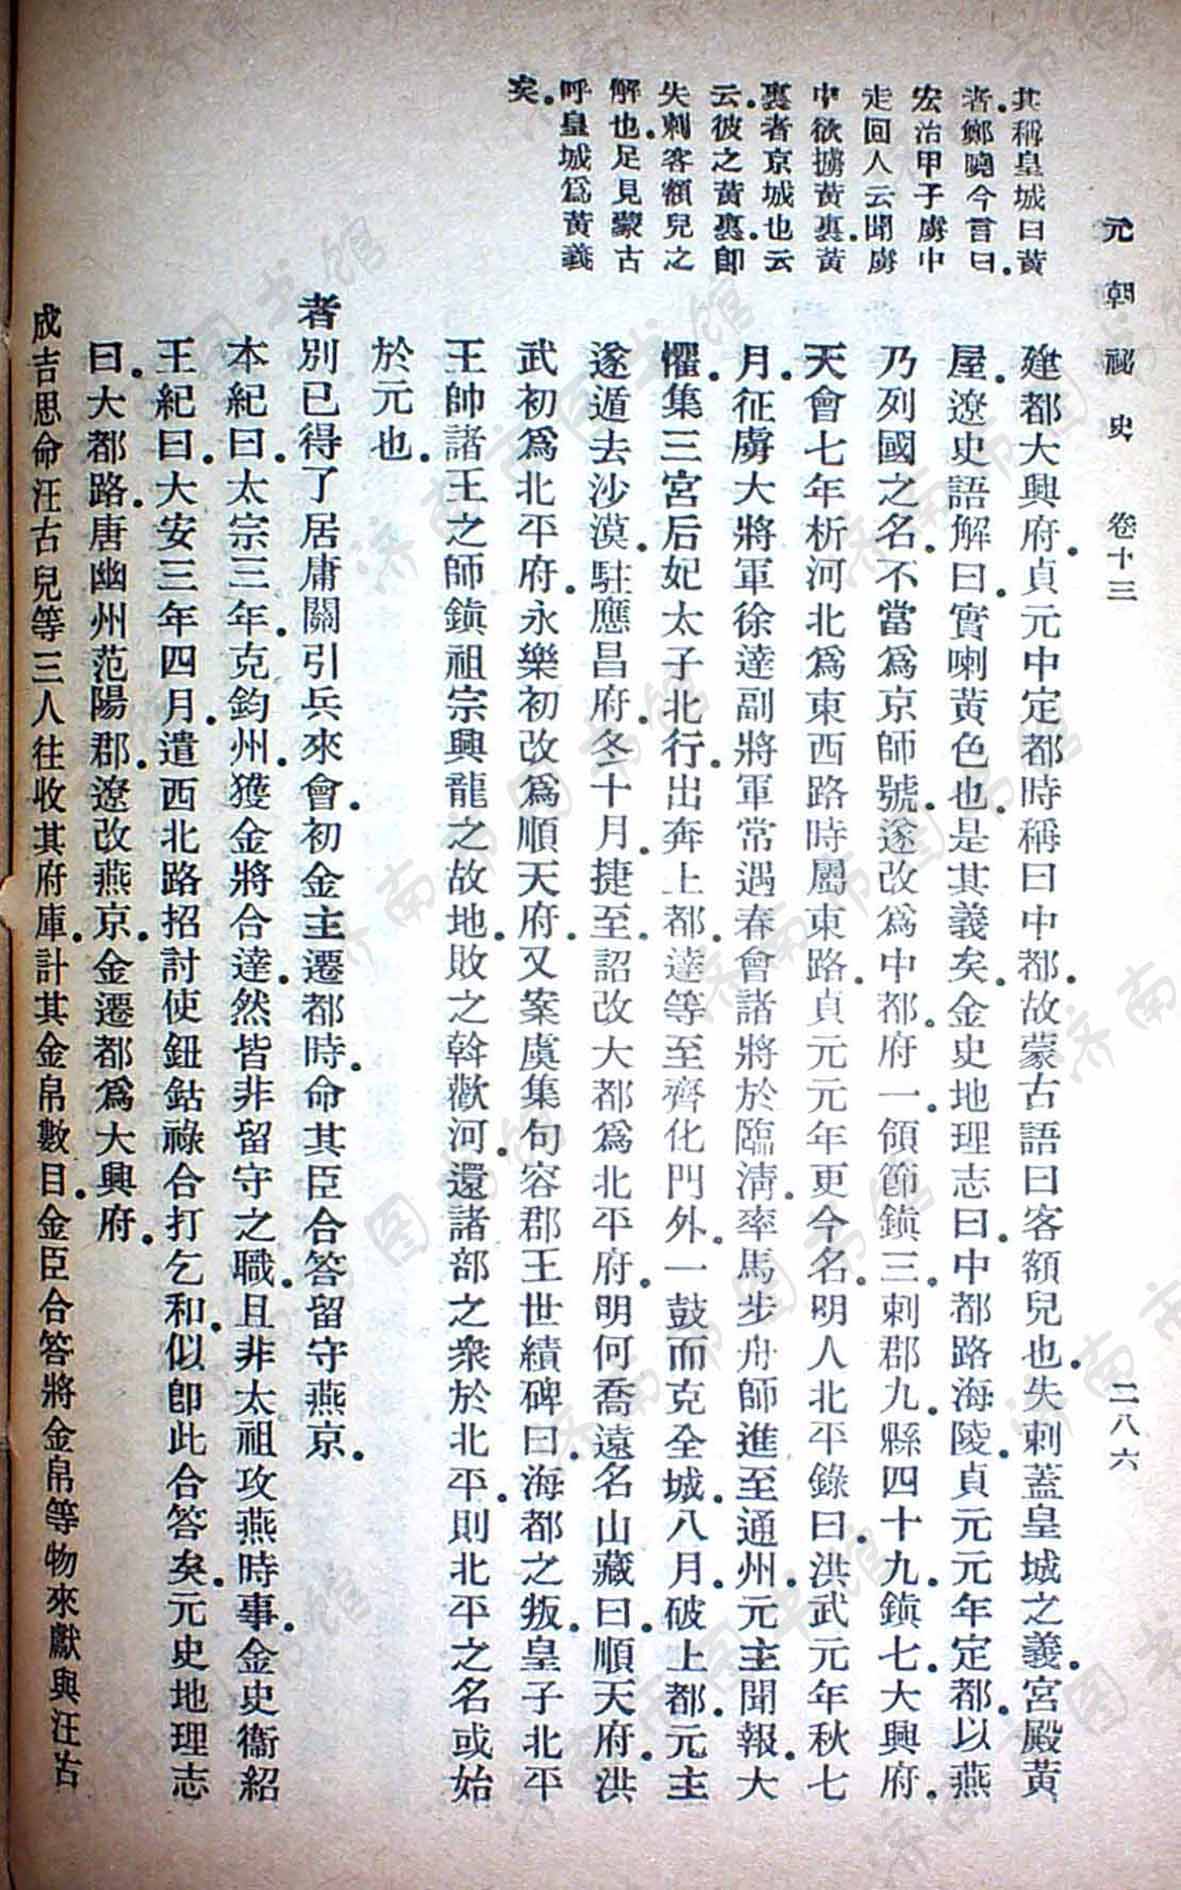 元朝祕史 卷十三 二八六
其稱皇城曰黃
者鄭曉今言曰
宏治甲子虜中
走回人云聞虜
中欲擄黃裏黃
裏者京城也云
云彼之黃裏卽
失剌客額兒之
解也足見蒙古
呼皇城爲黃義
矣
建都大興府貞元中定都時稱曰中都故蒙古語曰客額兒也失剌蓋皇城之義宮殿黃
屋遼史語解曰實喇黃色也是其義矣金史地理志曰中都路海陵貞元元年定都以燕
乃列國之名不當爲京師號遂改爲中都府一領節鎮三刺郡九縣四十九鎮七大興府
天會七年析河北爲東西路時屬東路貞元元年更今名明人北平錄曰洪武元年秋七
月征虜大將軍徐達副將軍常遇春會諸將於臨淸率馬步舟師進至通州元主聞報大
懼集三宮后妃太子北行出奔上都達等至齊化門外一鼓而克全城八月破上都元主
遂遁去沙漠駐應昌府冬十月捷至詔改大都爲北平府明何喬遠名山藏曰順天府洪
武初爲北平府永樂初改爲順天府又案虞集句容郡王世績碑曰海都之叛皇子北平
王帥諸王之師鎭祖宗興龍之故地敗之斡歡河還諸部之衆於北平則北平之名或始
於元也
者別已得了居庸關引兵來會初金主遷都時命其臣合答留守燕京
本紀曰太宗三年克鈞州獲金將合達然皆非留守之職且非太祖攻燕時事金史衞紹
王紀曰大安三年四月遣西北路招討使鈕鈷祿合打乞和似卽此合答矣元史地理志
曰大都路唐幽州范陽郡遼改燕京金遷都爲大興府
成吉思命汪古兒等三人往收其府庫計其金帛數目金臣合答將金帛等物來獻與汪古